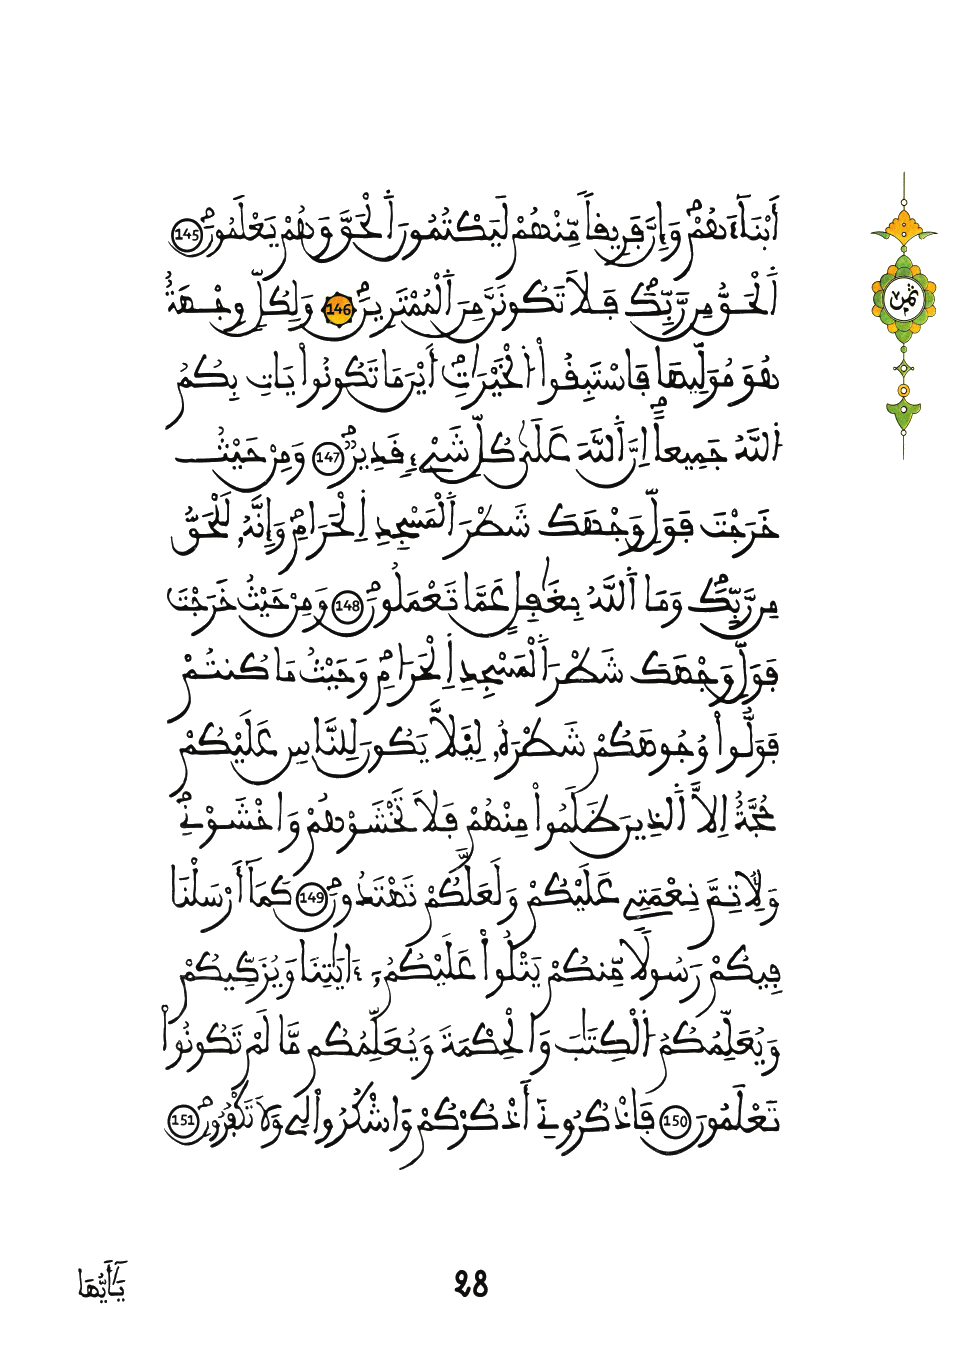 أَبْنَآءَهُمْ وَإِنَّ فَرِيقاً مِّنْهُمْ لَيَكْتُمُونَ اَ۬لْحَقَّ وَهُمْ يَعْلَمُونَ 145
ثمن
اَ۬لْحَقُّ مِن رَّبِّكَ فَلَا تَكُونَنَّ مِنَ اَ۬لْمُمْتَرِينَ 146 وَلِكُلّٖ وِجْهَةٌ
هُوَ مُوَلِّيهَا فَاسْتَبِقُواْ اُ۬لْخَيْرَٰتِ أَيْنَ مَا تَكُونُواْ يَاتِ بِكُمُ
اُ۬للَّهُ جَمِيعاً اِنَّ اَ۬للَّهَ عَلَىٰ كُلِّ شَےْءٖ قَدِيرٌ 147 وَمِنْ حَيْثُ
خَرَجْتَ فَوَلِّ وَجْهَكَ شَطْرَ اَ۬لْمَسْجِدِ اِ۬لْحَرَامِ وَإِنَّهُۥ لَلْحَقُّ
مِن رَّبِّكَ وَمَا اَ۬للَّهُ بِغَٰفِلٍ عَمَّا تَعْمَلُونَ 148 وَمِنْ حَيْثُ خَرَجْتَ
فَوَلِّ وَجْهَكَ شَطْرَ اَ۬لْمَسْجِدِ اِ۬لْحَرَامِ وَحَيْثُ مَا كُنتُمْ
فَوَلُّواْ وُجُوهَكُمْ شَطْرَهُۥ لِيَلَّا يَكُونَ لِلنَّاسِ عَلَيْكُمْ
حُجَّةٌ اِلَّا اَ۬لذِينَ ظَلَمُواْ مِنْهُمْ فَلَا تَخْشَوْهُمْ وَاخْشَوْنِے
وَلِأُتِمَّ نِعْمَتِے عَلَيْكُمْ وَلَعَلَّكُمْ تَهْتَدُونَ 149 كَمَآ أَرْسَلْنَا
فِيكُمْ رَسُولًا مِّنكُمْ يَتْلُواْ عَلَيْكُمُۥٓ ءَايَٰتِنَا وَيُزَكِّيكُمْ
وَيُعَلِّمُكُمُ اُ۬لْكِتَٰبَ وَالْحِكْمَةَ وَيُعَلِّمُكُم مَّا لَمْ تَكُونُواْ
تَعْلَمُونَ 150 فَاذْكُرُونِےٓ أَذْكُرْكُمْ وَاشْكُرُواْ لِے وَلَا تَكْفُرُونِ 151
يَٰٓأَيُّهَا
28